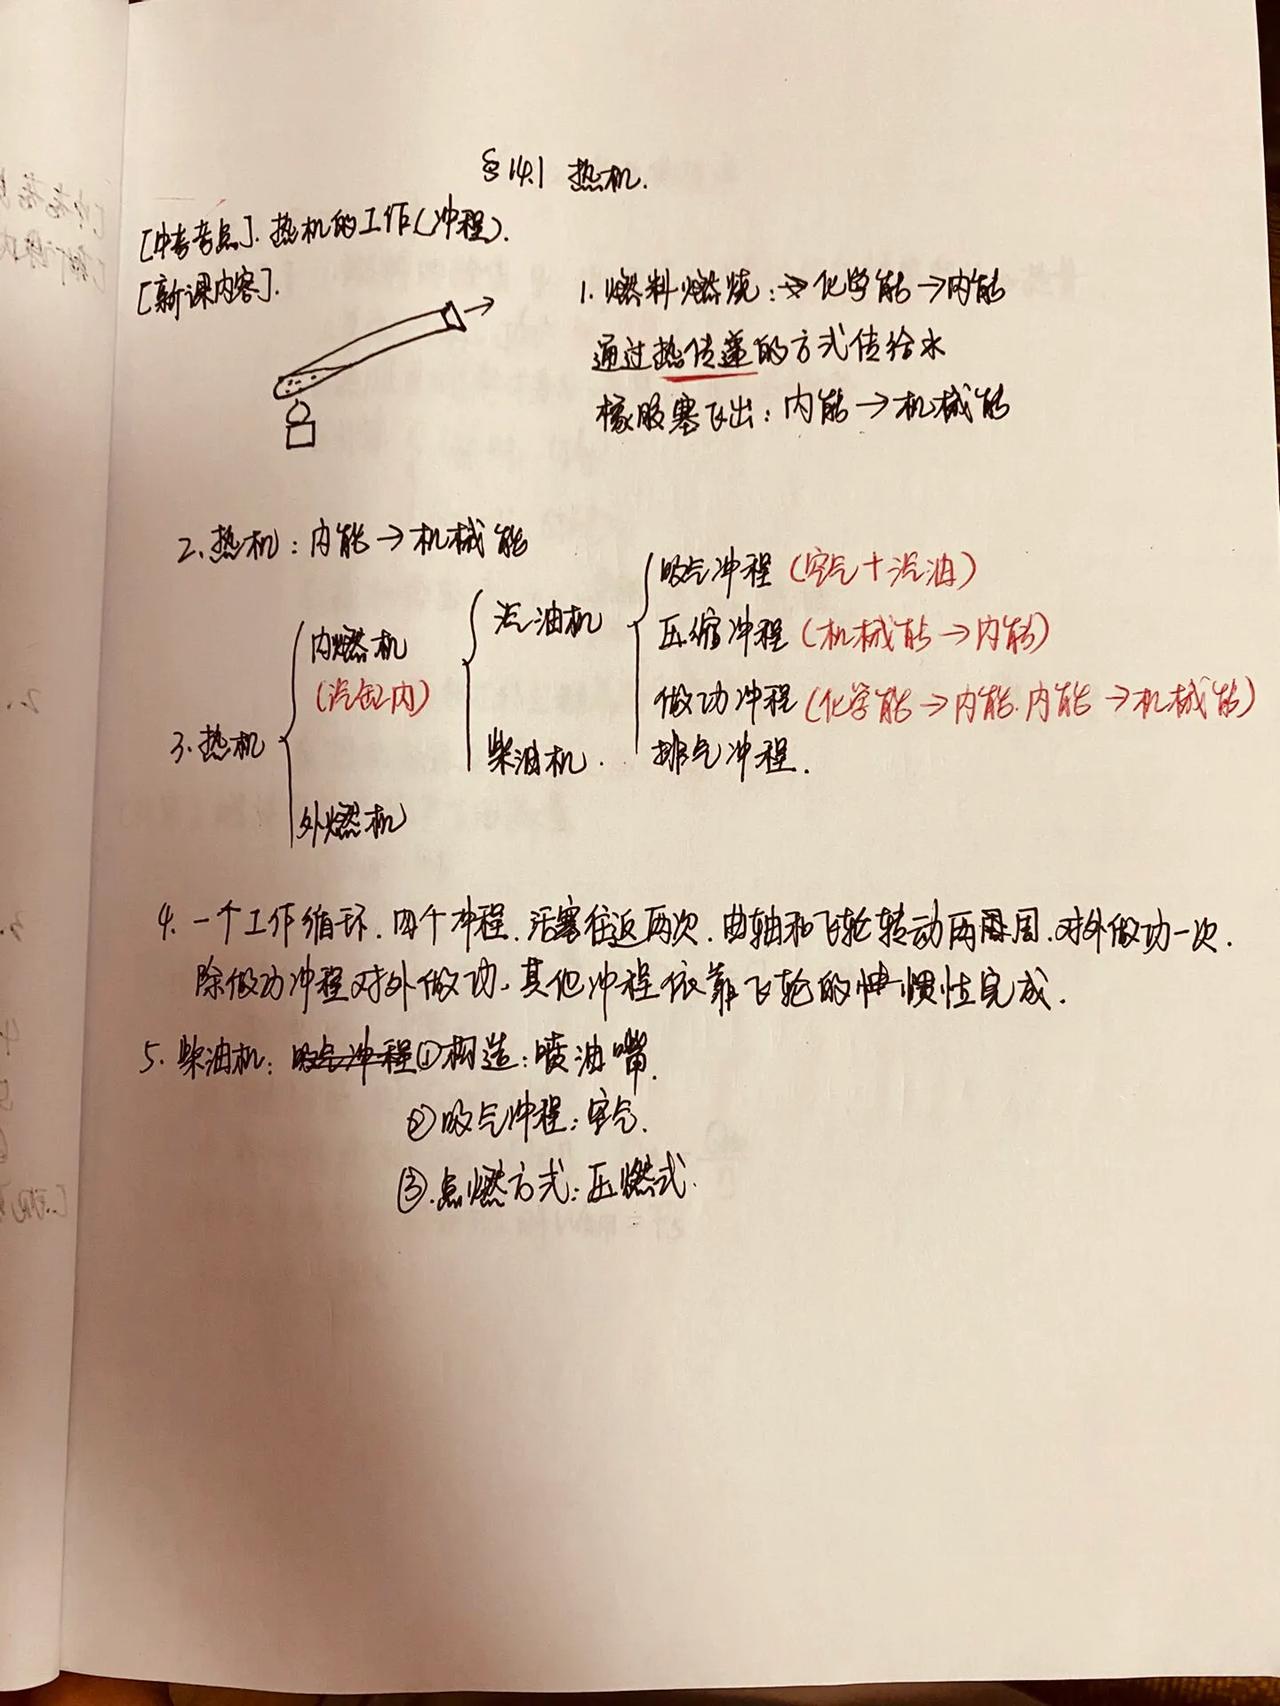 §14.1 热机.
[中考考点]. 热机的工作(冲程).
[新课内容].
1. 燃料燃烧:→化学能→内能
通过热传递的方式传给水
橡胶塞飞出: 内能→机械能
2. 热机: 内能→机械能
3. 热机
内燃机
(汽缸内)
外燃机
汽油机
柴油机.
吸气冲程 (空气+汽油)
压缩冲程 (机械能→内能)
做功冲程 (化学能→内能. 内能→机械能)
排气冲程.
4. 一个工作循环. 四个冲程. 活塞往返两次. 曲轴和飞轮转动两周. 对外做功一次.
除做功冲程对外做功. 其他冲程依靠飞轮的惯性完成.
5. 柴油机: 吸气冲程①构造: 喷油嘴.
②吸气冲程: 空气.
③.点燃方式: 压燃式.